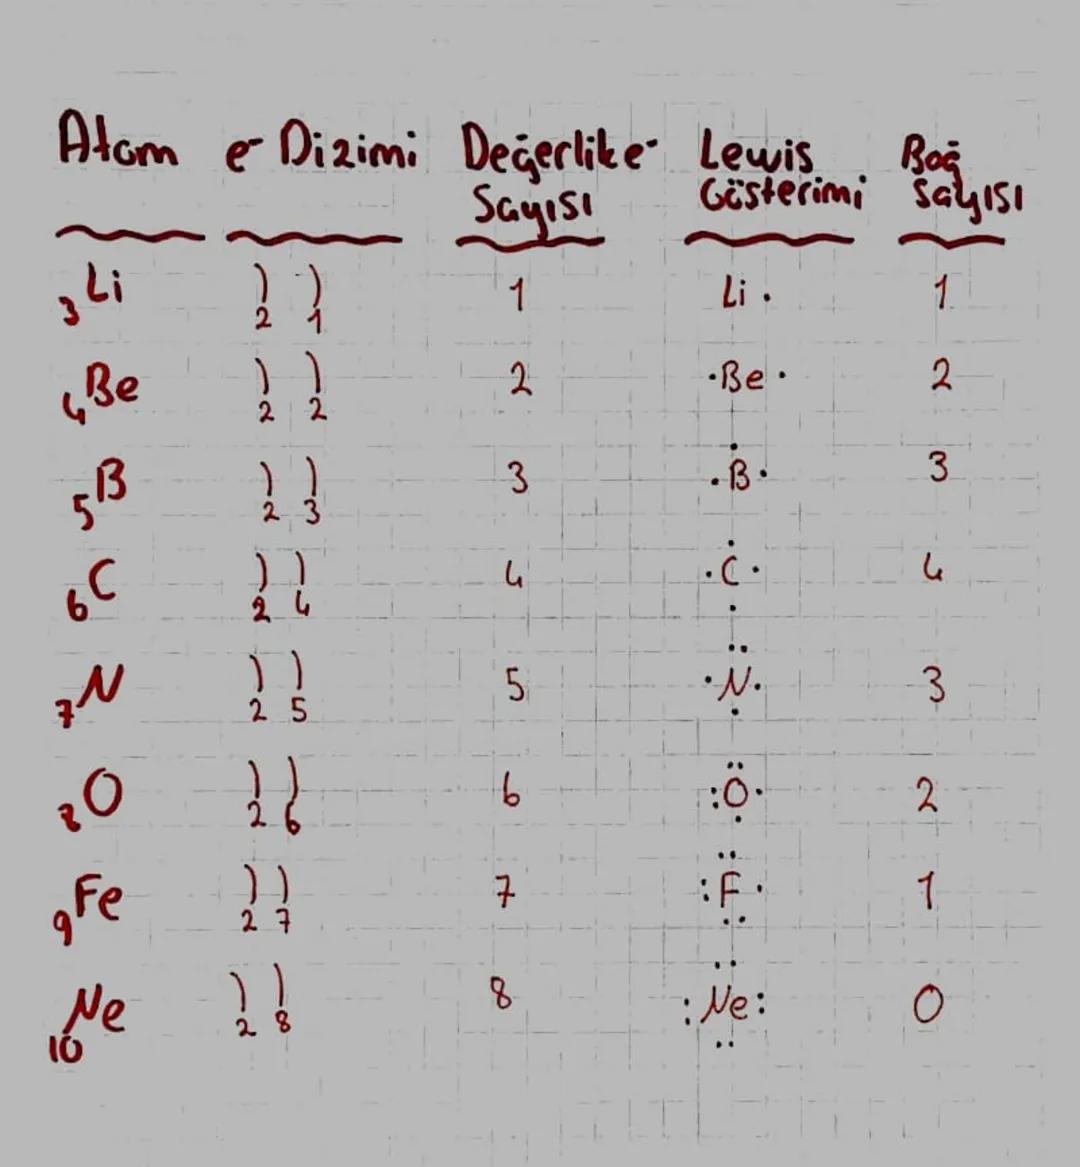 Atom e- Dizimi Değerlik e- Sayısı Lewis Gösterimi Bağ Sayısı
3Li ) ) 2 1 1 Li . 1
4Be ) ) 2 2 2 .Be . 2
5B ) ) 2 3 3 .B. 3
6C ) ) 2 4 4 .C. 4
7N ) ) 2 5 5 .N. 3
8O ) ) 2 6 6 :O. 2
9Fe ) ) 2 7 7 :F. 1
10Ne ) ) 2 8 8 :Ne: 0